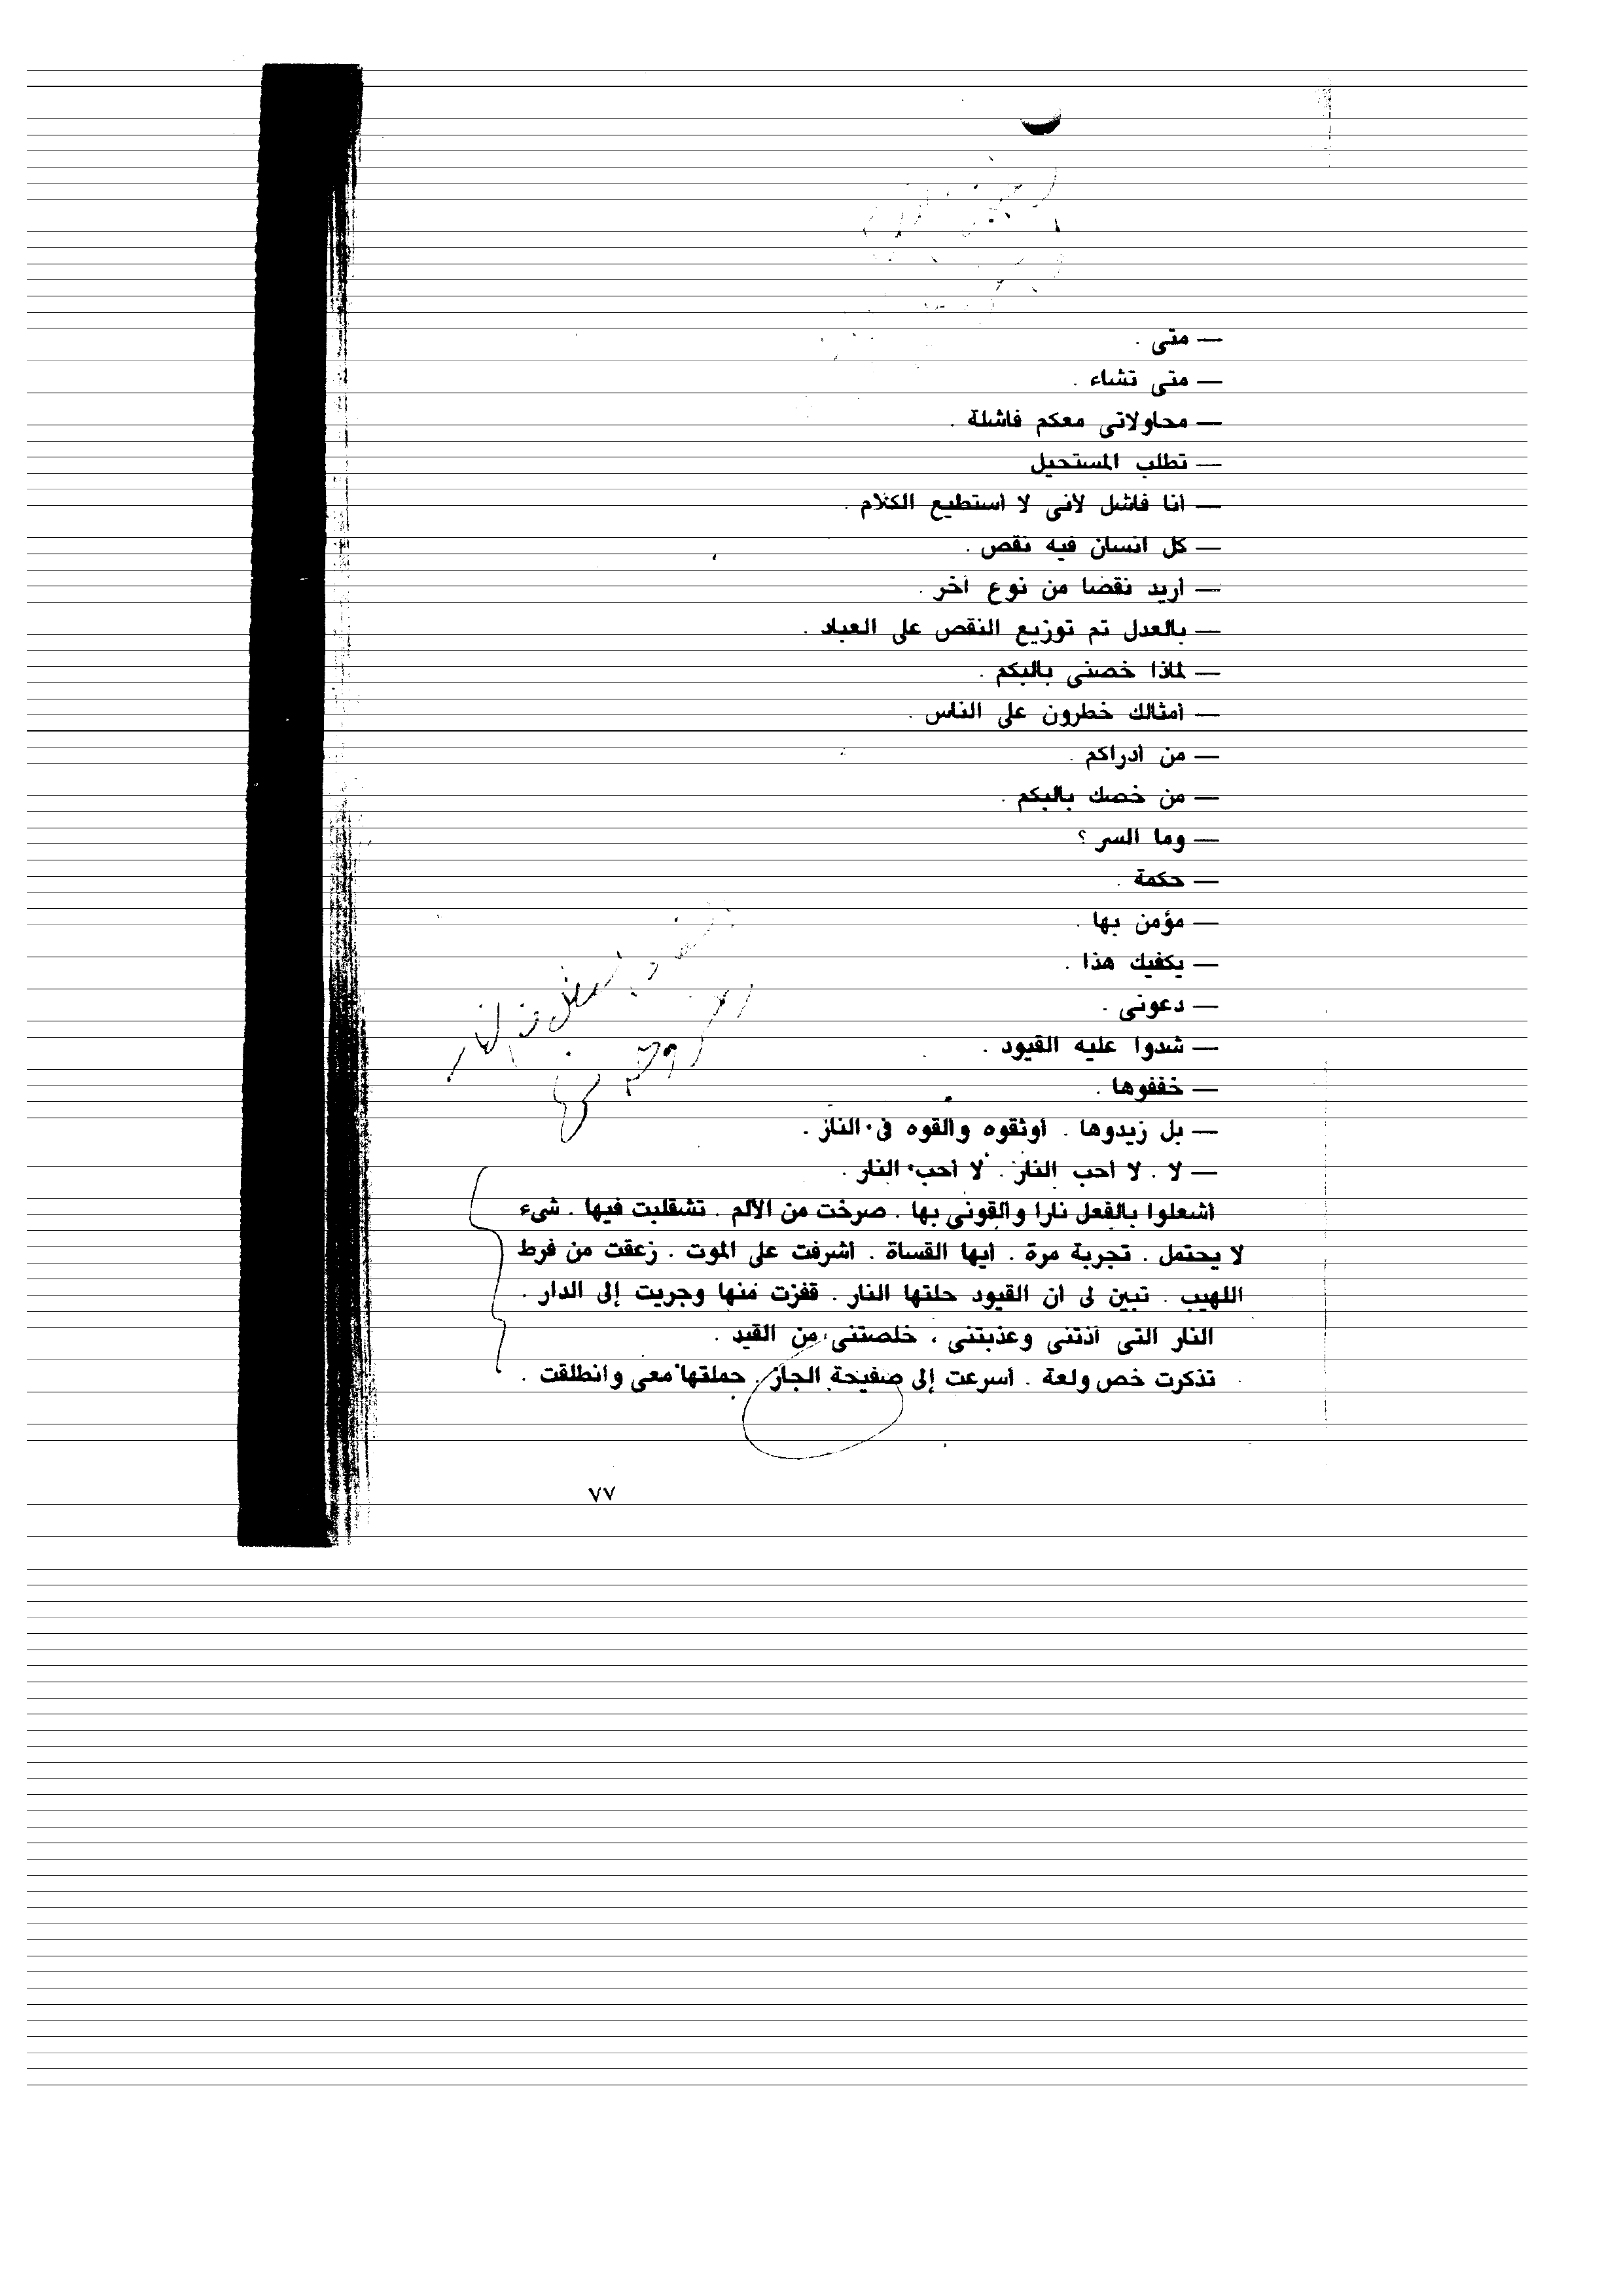 — متى .
— متى تشاء .
— محاولاتى معكم فاشلة .
— تطلب المستحيل
— أنا فاشل لأنى لا أستطيع الكلام .
— كل انسان فيه نقص .
— أريد نقصا من نوع آخر .
— بالعدل تم توزيع النقص على العباد .
— لماذا خصنى بالبكم .
— أمثالك خطرون على الناس .
— من أدراكم .
— من خصك بالبكم .
— وما السر ؟
— حكمة .
— مؤمن بها .
— يكفيك هذا .
— دعونى .
— شدوا عليه القيود .
— خففوها .
— بل زيدوها . أوثقوه والقوه فى النار .
— لا . لا أحب النار . لا أحب النار .
أشعلوا بالفعل نارا والقونى بها . صرخت من الألم . تشقلبت فيها . شىء
لا يحتمل . تجربة مرة . أيها القساة . أشرفت على الموت . زعقت من فرط
اللهيب . تبين لى أن القيود حلتها النار . قفزت منها وجريت إلى الدار .
النار التى آذتنى وعذبتنى ، خلصتنى من القيد .
تذكرت خص ولعة . أسرعت إلى صفيحة الجاز . حملتها معى وانطلقت .
٧٧